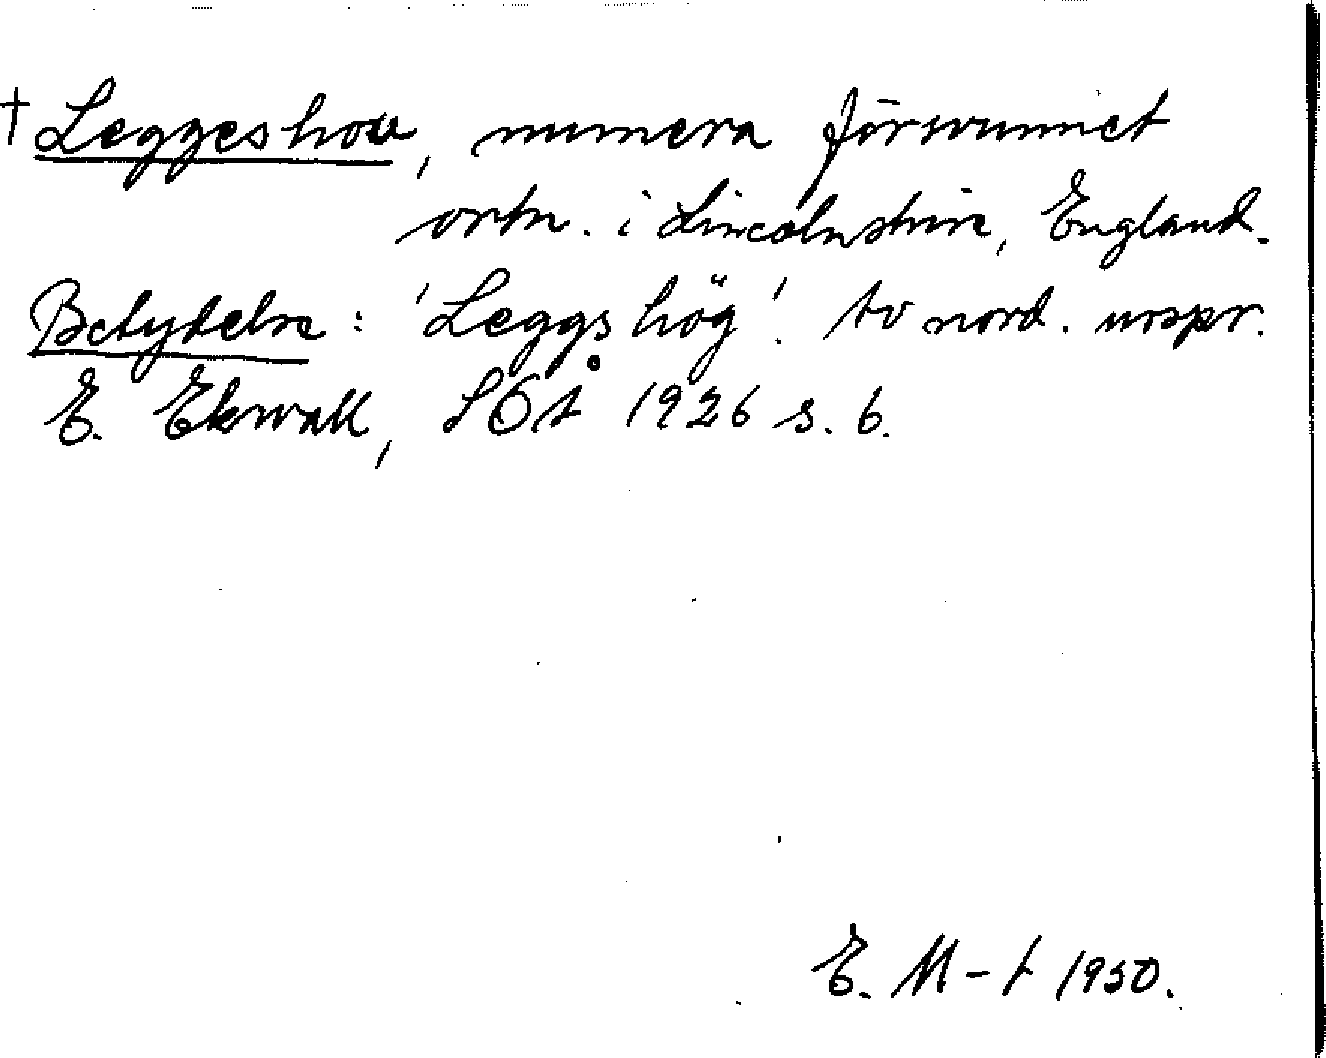 † Leggeshou, numera försvunnet
ortn. i Lincolnshire, England.
Betydelse: 'Leggs hög'. tv nord. urspr.
E. Ekwall, SOÅ 1926 s. 6.
E. M-t 1950.